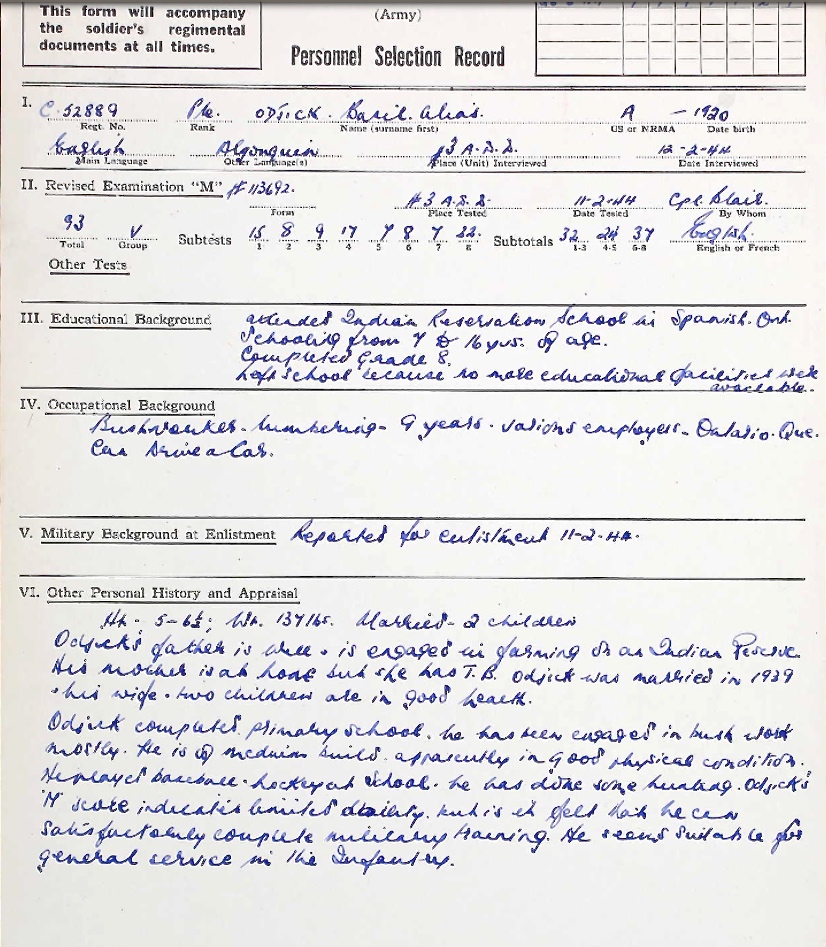 This form will accompany
the soldier's regimental
documents at all times.
(Army)
Personnel Selection Record
I. C-52889 Pte. ODJICK. Basil. Alias. A -1920
Regt. No. Rank Name (surname first) GS or NRMA Date birth
English Algonquin #3 A.D.D. 12-2-44
Main Language Other Language(s) Place (Unit) Interviewed Date Interviewed
II. Revised Examination "M" # 113692. #3 A.D.D. 11-2-44 Cpl Blair.
Form Place Tested Date Tested By Whom
93 V Subtests 15 8 9 17 7 8 7 22. Subtotals 32 24 37 English
Total Group 1 2 3 4 5 6 7 8 1-3 4-5 6-8 English or French
Other Tests
III. Educational Background attended Indian Reservation School in Spanish. Ont.
Schooling from 7 to 16 yrs. of age.
Completed Grade 8.
Left school because no more educational facilities were
available.
IV. Occupational Background
Bushworker - lumbering - 9 years - various employers - Ontario. Que.
Can drive a car.
V. Military Background at Enlistment Reported for enlistment 11-2-44.
VI. Other Personal History and Appraisal
Ht. - 5-6½; Wt. 137 lbs. Married - 2 children
Odjick's father is well - is engaged in farming on an Indian Reserve
His mother is at home but she has T.B. Odjick was married in 1939
- his wife - two children are in good health.
Odjick completed primary school. he has been engaged in bush work
mostly. He is of medium build. apparently in good physical condition.
He played baseball - hockey at school. he has done some hunting. Odjick's
'M' score indicates limited ability. but is it felt that he can
satisfactorily complete military training. He seems suitable for
general service in the Infantry.